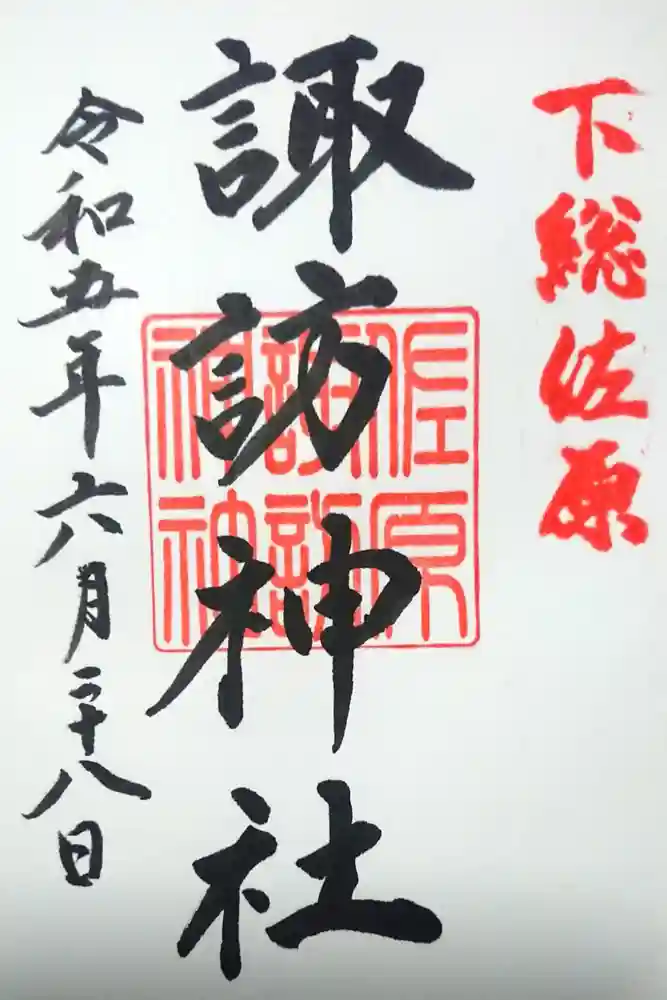 下総佐原
諏訪神社
佐原
諏訪
神社
令和五年六月二十八日